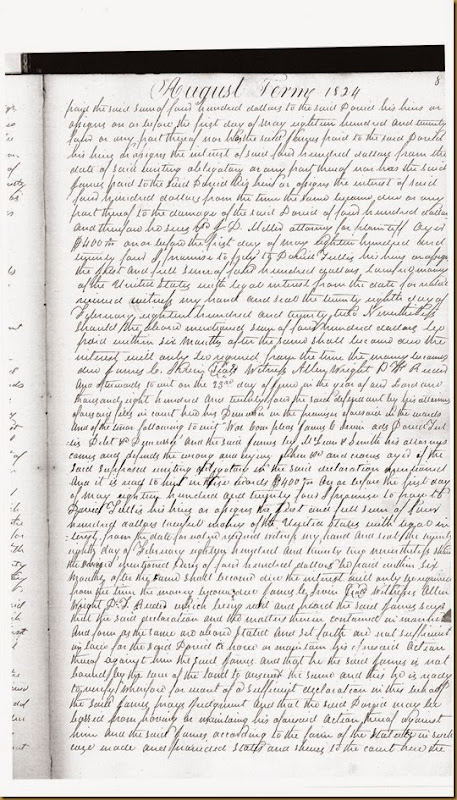 8
August Term 1824
paid the said sum of four hundred dollars to the said David his heirs or
assigns on or before the first day of May eighteen hundred and twenty
four or any part thereof nor has the said James paid to the said David
his heirs or assigns the interest of said four hundred dollars from the
date of said writing obligatory or any part thereof nor has the said
James paid to the said David his heirs or assigns the interest of said
four hundred dollars from the time the same became due or any
part thereof to the damage of the said David of four hundred dollars
and therefore he sues &c P. Miller attorney for plaintiff Oyer
$400 on or before the first day of May eighteen hundred and
twenty four I promise to pay to David Tullis his heirs or assigns
the just and full sum of four hundred dollars lawful money
of the United States with legal interest from the date for value
received witness my hand and seal the twenty eighth day of
February eighteen hundred and twenty two Nevertheless
should the above mentioned sum of four hundred dollars be
paid within six months after the same shall become due the
interest will only be required from the time the money becomes
due James Seal Witness Allen Wright
And afterwards to wit on the 23rd day of June in the year of our Lord one
thousand eight hundred and twenty four the said defendant by his attorneys
aforesaid files in court here his Demurrer in the premises aforesaid in the words
and of the tenor following to wit James ads David Tul
lis Debt & Demurrer And the said James by McLean & Smith his attorneys
comes and defends the wrong and injury when &c and craves oyer of the
said supposed writing obligatory in the said declaration mentioned
and it is read to him in these words $400 On or before the first day
of May eighteen hundred and twenty four I promise to pay to
David Tullis his heirs or assigns the just and full sum of four
hundred dollars lawful money of the United States with legal in
terest from the date for value received witness my hand and seal the twenty
eighth day of February eighteen hundred and twenty two nevertheless should
the above mentioned sum of four hundred dollars be paid within six
months after the same shall become due the interest will only be required
from the time the money becomes due James Seal Witness Allen
Wright which being read and heard the said James says
that the said declaration and the matters therein contained in manner
and form as the same are above stated and set forth are not sufficient
in law for the said David to have or maintain his aforesaid action
thereof against him the said James and that he the said James is not
bound by the law of the land to answer the same and this he is ready
to verify wherefore for want of a sufficient declaration in this behalf
the said James prays Judgment and that the said David may be
barred from having or maintaining his aforesaid action thereof against
him and the said James according to the form of the statute in such
case made and provided states and shews to the court here the